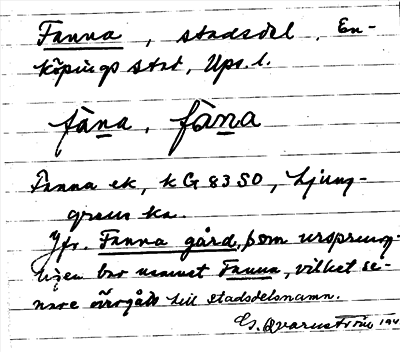 Fanna, stadsdel, En-
köpings stad, Ups. l.
fàna, fàna
Fanna ek, kG 83 SO, Ljung-
gren ka.
Jfr. Fanna gård, som ursprung-
ligen bar namnet Fanna, vilket se-
nare övergått till stadsdelsnamn.
G. Qvarnström 194